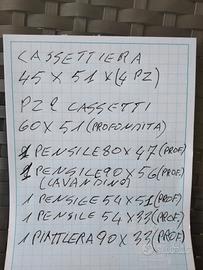 CASSETTIERA
45 X 51 X (4 PZ)
PZ 2 CASSETTI
60 X 51 (PROFONDITA
1 PENSILE 80 X 47 (PROF.)
1 PENSILE 90 X 56 (PROF.)
(LAVANDINO)
1 PENSILE 54 X 51 (PROF.)
1 PENSILE 54 X 33 (PROF.)
1 PIATTLERA 90 X 33 (PROF.)